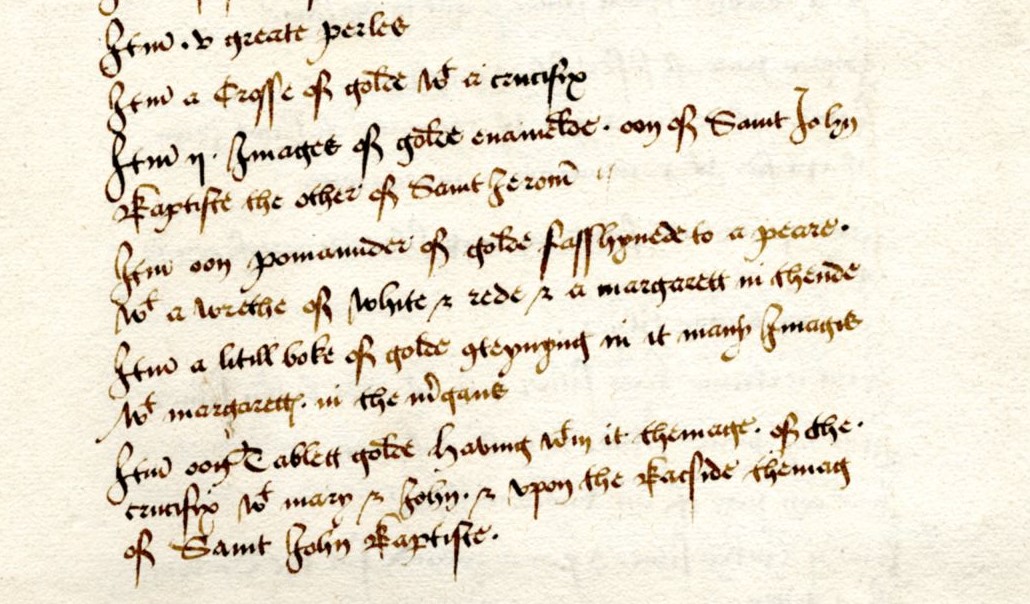 Itm̄ . v greate perles
Itm̄ a Crosse of golde wᵗ a crucifix
Itm̄ ij . Images of golde enamelde . oon of Saint John
Baptiste the other of Saint Jerom̄
Itm̄ oon pomaunder of golde fasshynede to a peare .
wᵗ a wrethe of white & rede & a margarett in thende
Itm̄ a litill boke of golde ꝯteynyng in it many Images
wᵗ margarettꝭ . in the
Itm̄ oon Tablett golde having wᵗin it themage . of the .
crucifix wᵗ mary & John . & vpon the Bacside themag
of Saint John Baptiste .